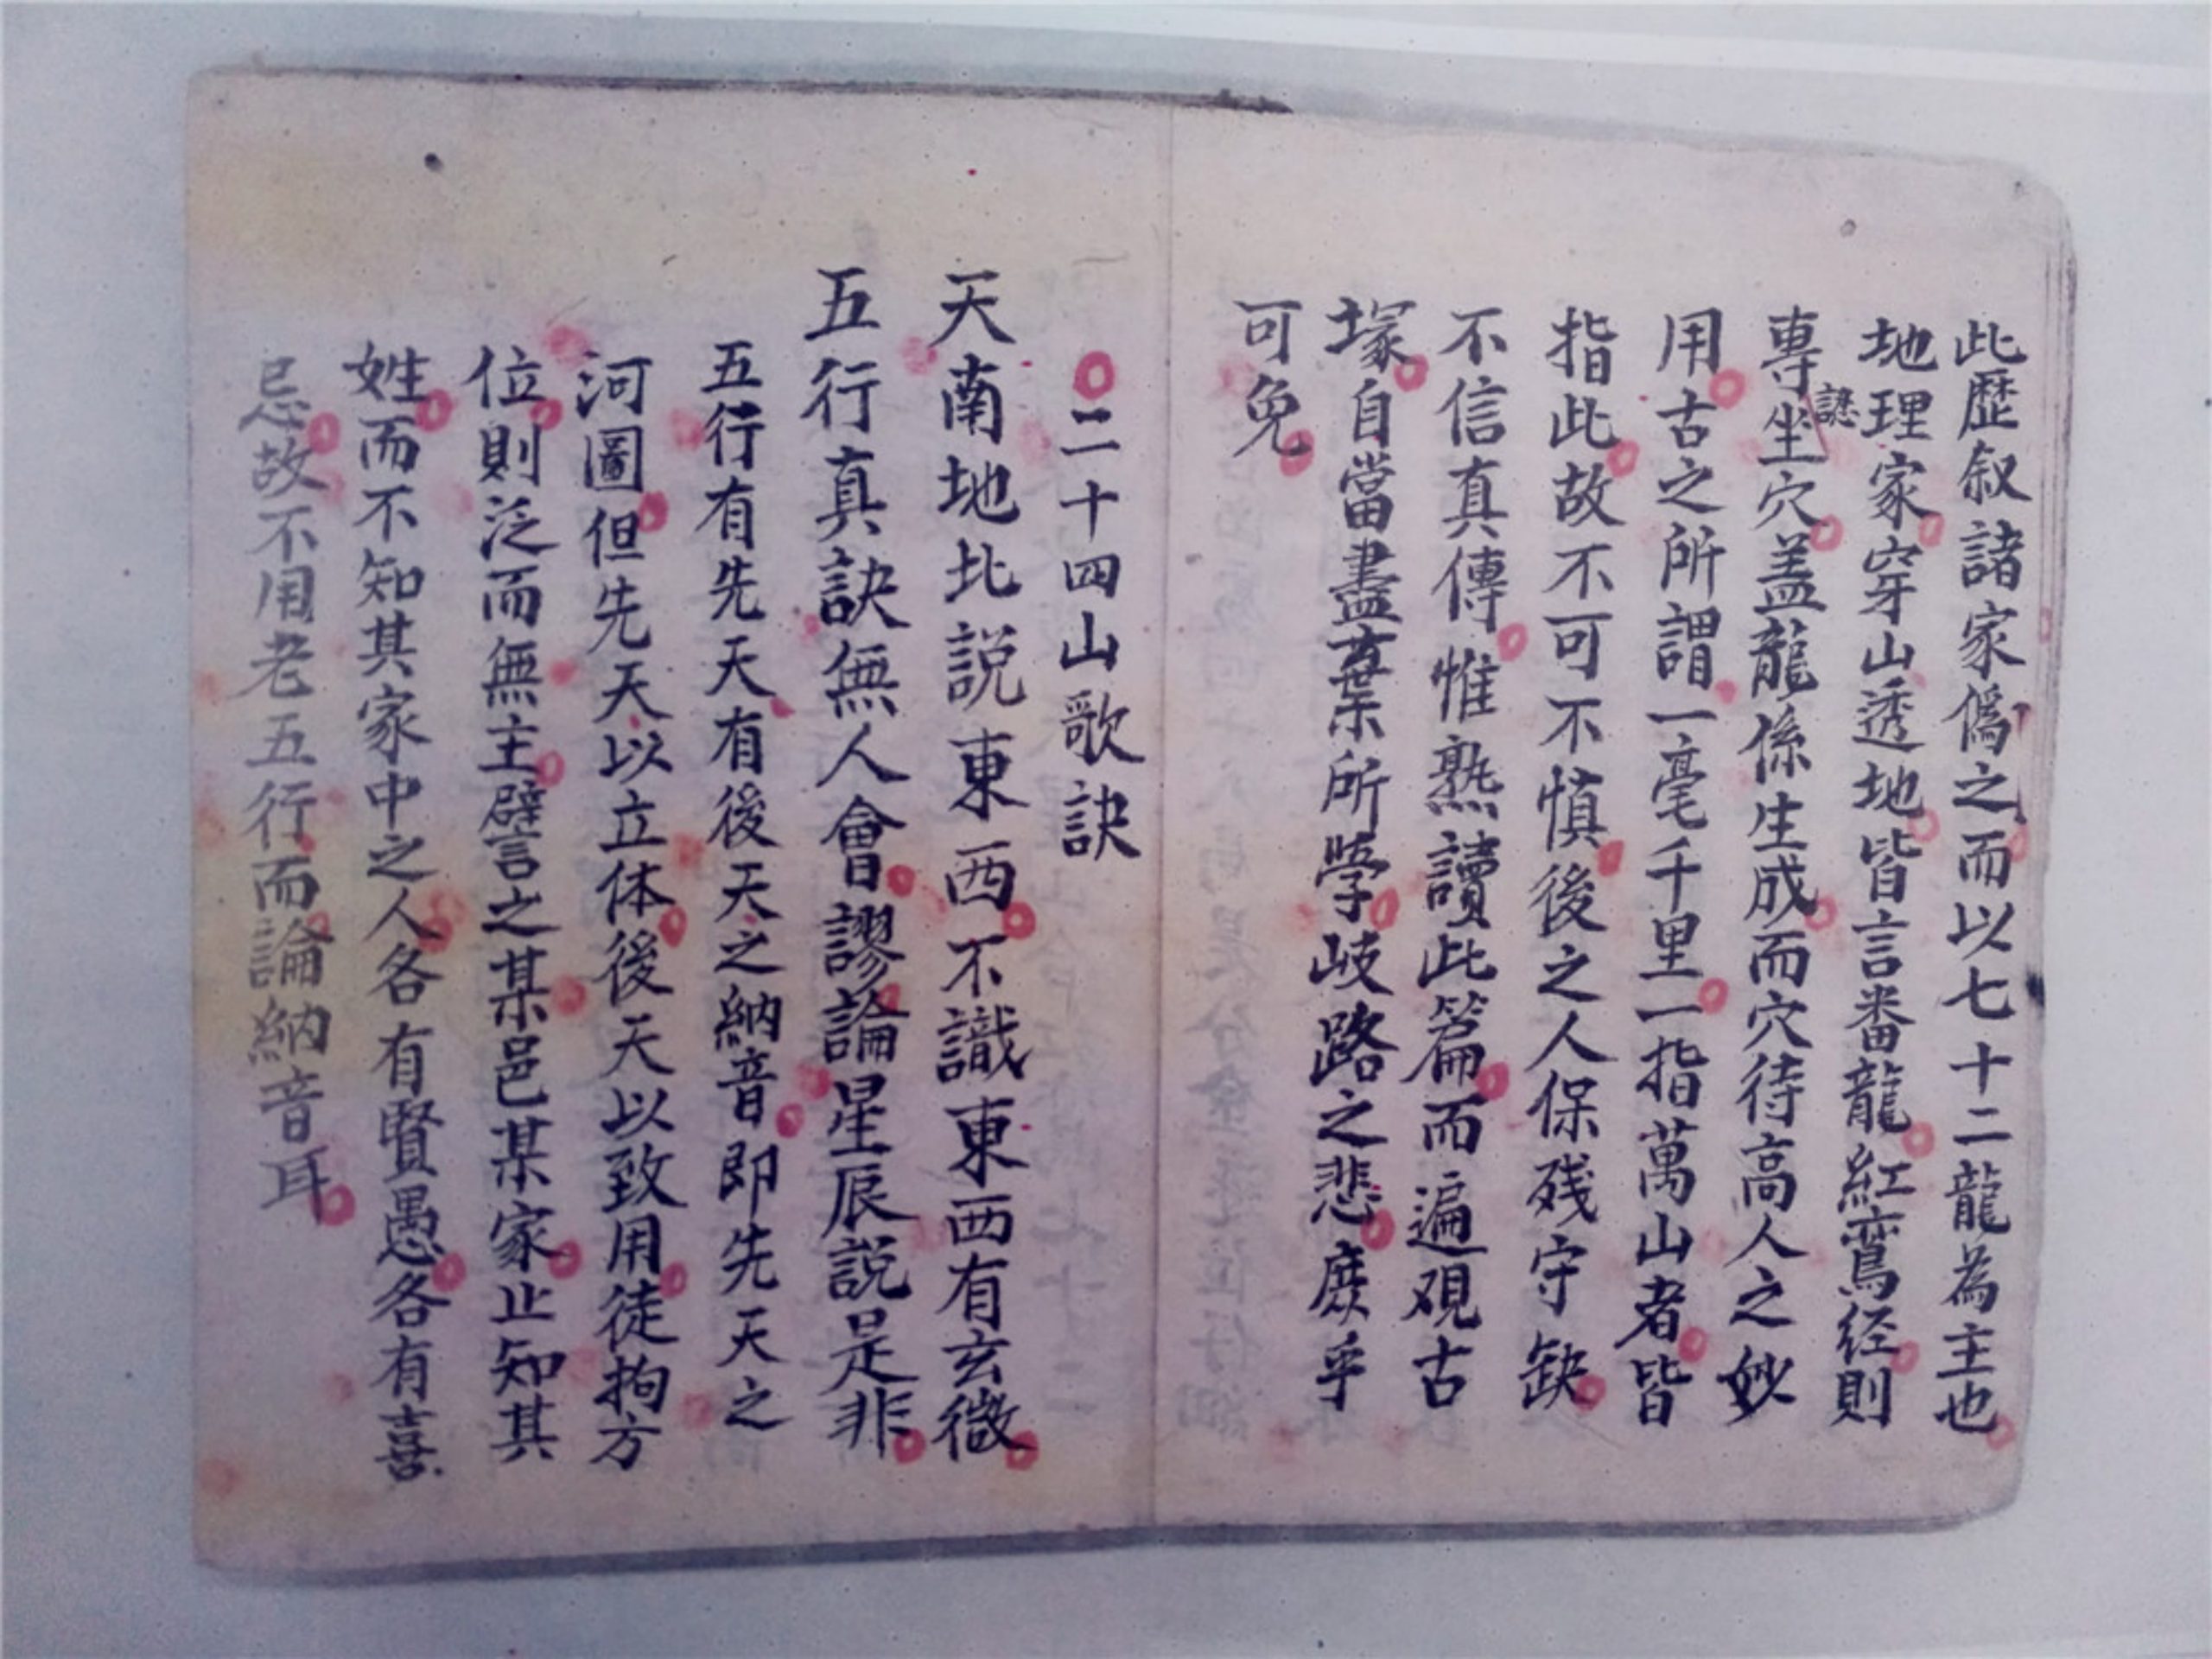 此歴叙諸家僞之而以七十二龍為主也
地理家穿山透地皆言畨龍紅鸞经則
專論坐穴盖龍係生成而穴待高人之妙
用古之所謂一毫千里一指萬山者皆
指此故不可不慎後之人保残守缺
不信真傳惟熟讀此篇而遍覌古
塚自當盡棄所學岐路之悲庶乎
可免
二十四山歌訣
天南地北説東西不識東西有玄微
五行真訣無人會謬論星辰説是非
五行有先天有後天之納音即先天之
河圖但先天以立体後天以致用徒拘方
位則泛而無主譬言之某邑某家止知其
姓而不知其家中之人各有賢愚各有喜
忌故不用老五行而論納音耳